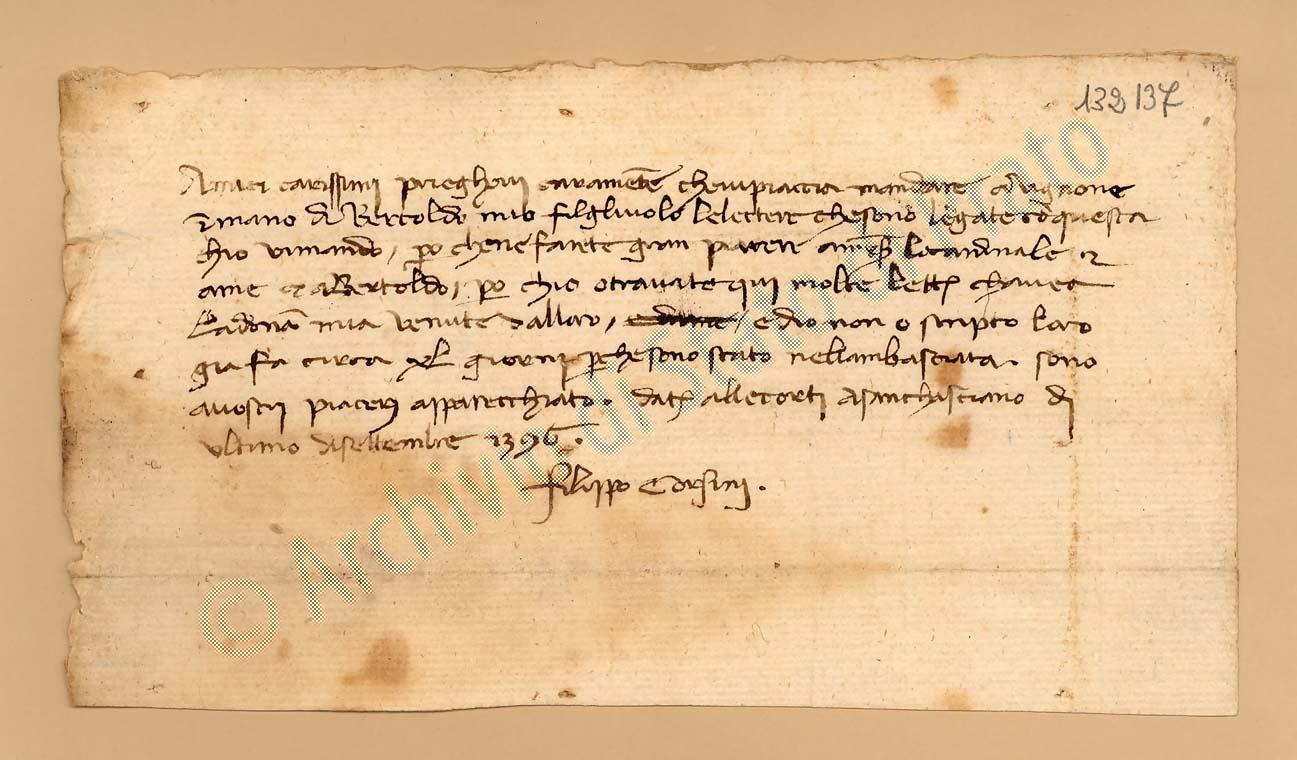 132 137
Amici carissimi prieghovi caramēte chevipiaccia mandare a vignone
i mano di Bertoldo mio filgliuolo le lectere che sono legate cō questa
chio vi mando / po che ne farete gran piacere a ms lo cardinale et
a me et a Bertoldo / po chio o trovate qui molte lett chavea
la dōna mia venute dallui / e dio non o scripto loro
gia fa circa XL giorni pche sono stato nell ambasciata. sono
a vostri piaceri apparecchiato. dat alle corti a sanchasciano di
ultimo di settembre 1396.
filippo Corsini.
© Archivio di Stato di Prato